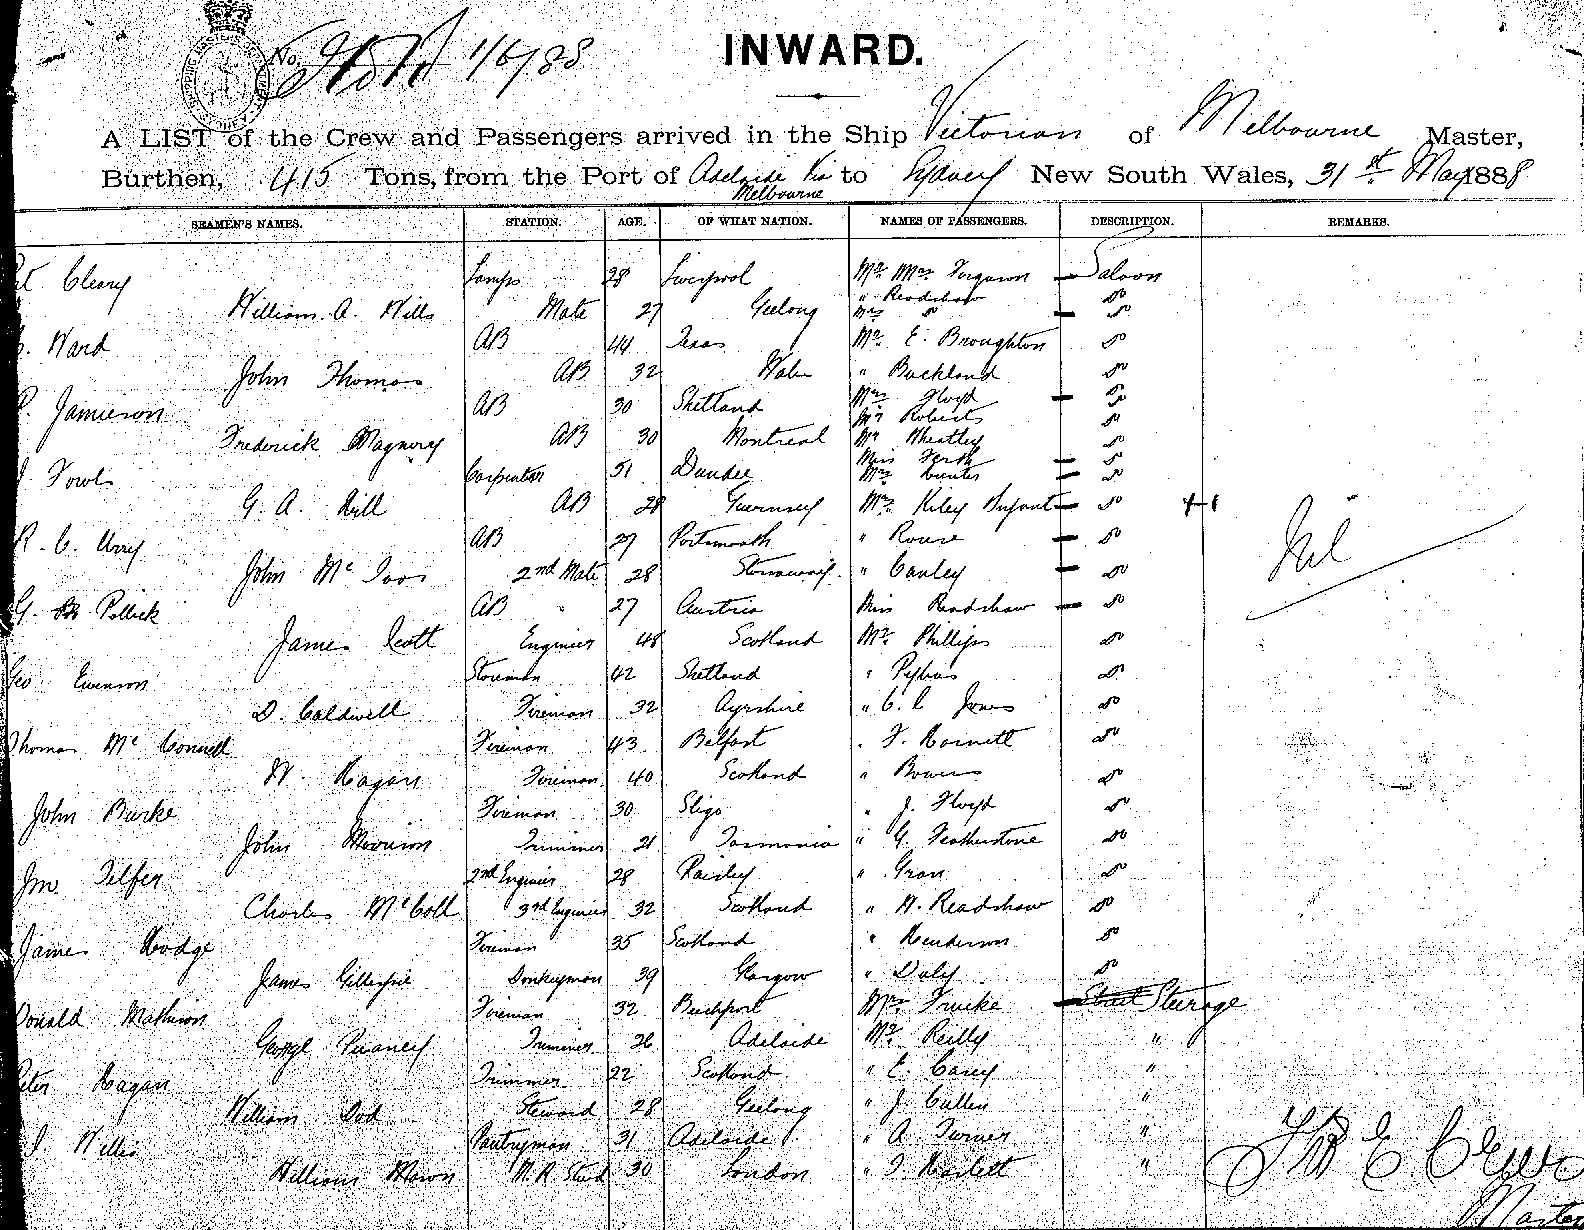 No. 1/6/88
INWARD.
A LIST of the Crew and Passengers arrived in the Ship Victorian of Melbourne Master,
Burthen, 415 Tons, from the Port of Adelaide Via to Sydney New South Wales, 31st May 1888
Melbourne
SEAMEN'S NAMES. STATION. AGE. OF WHAT NATION. NAMES OF PASSENGERS. DESCRIPTION. REMARKS.
Cleary Lamps 28 Liverpool Mr Mrs Ferguson Saloon
" Readshaw Do
William A. Wills Mate 27 Geelong Mrs Do Do
Ward AB 44 Texas Mr E. Broughton Do
John Thomas AB 32 Wales " Buckland Do
Jamieson AB 30 Shetland Mrs Floyd Do
Mr Roberts Do
Frederick AB 30 Montreal Mr Wheatley Do
Carpenter 51 Dundee Miss Do
Mrs Do
G. A. AB 28 Guernsey Mrs Kiley Infant Do +1
R. C. Urry AB 27 Portsmouth " Rouse Do Nil
John Mc 2nd Mate 28 " Cauley Do
G. Pollick AB 27 Austria Miss Readshaw Do
James Scott Engineer 48 Scotland Mr Phillips Do
Geo Evenson Storeman 42 Shetland " Do
D. Caldwell Fireman 32 Ayrshire " C. C. Jones Do
Thomas McConnell Fireman 43 Belfast " F. Do
W. Hagan Fireman 40 Scotland " Do
John Burke Fireman 30 Sligo " J. Floyd Do
John Morrison Trimmer 21 Tasmania " G. Featherstone Do
Jno Telfer 2nd Engineer 28 Paisley " Do
Charles McColl 3rd Engineer 32 Scotland " H. Readshaw Do
James Hodge Fireman 35 Scotland " Henderson Do
James Gillespie Donkeyman 39 Glasgow " Daly Do
Donald Mathieson Fireman 32 Beachport Mrs Steerage
George Trimmer 26 Adelaide Mr Reilly "
Peter Hagan Trimmer 22 Scotland " E Carey "
William Dod Steward 28 Geelong " J Cullen "
J. Willis Pantryman 31 Adelaide " A Turner "
William Mown M. R. Stwd 30 London " "
Master